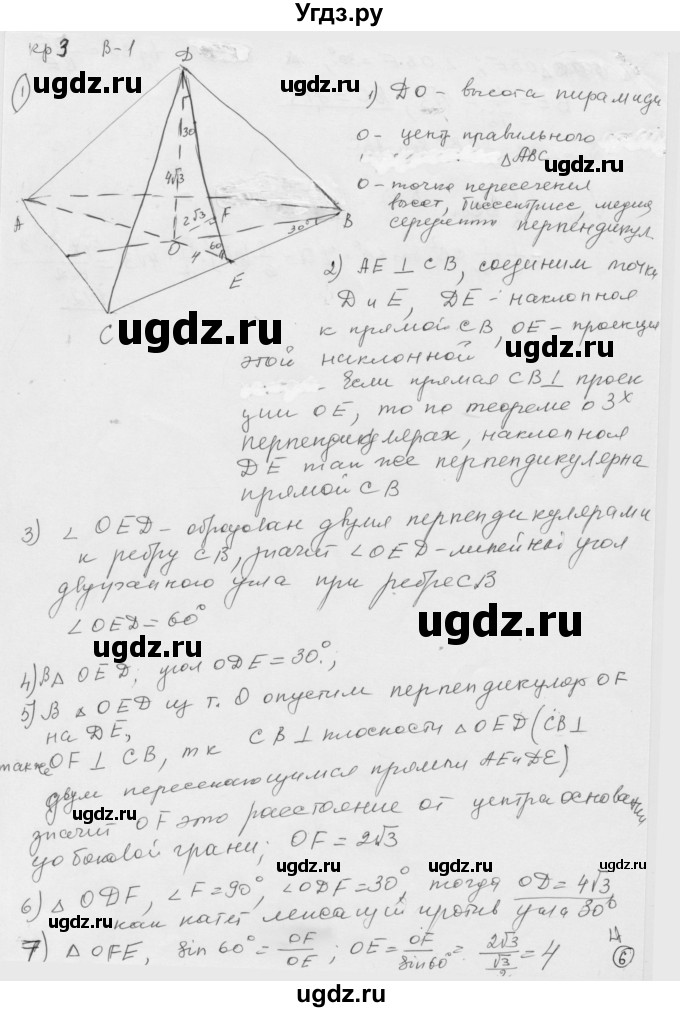 Угдз.ру
кр 3 В-1
1
D
30
4√3
2√3
F
A
B
30°
O
60
4
E
C
1) DO - высота пирамиды
O - цент правильного
△ABC
O - точка пересечения
высот, биссектрисс, медиа
середентн перпендикул
2) AE ⊥ CB, соединим точки
D и E, DE - наклонная
к прямой CB, OE - проекция
этой наклонной
. Если прямая CB ⊥ проек
ции OE, то по теореме о 3х
перпендикулярах, наклонная
DE так же перпендикулярна
прямой CB
3) ∠ OED - образован двумя перпендикулярами
к ребру CB, значит ∠OED - линейный угол
двухгранного угла при ребре CB
∠OED = 60°
4) В △ OED; угол ODE = 30°;
5) В △ OED из т. O опустим перпендикуляр OF
на DE, CB ⊥ плоскости △ OED (CB ⊥
также OF ⊥ CB, тк
двум пересекающимся прямым AE и DE)
значит OF это расстояние от центра основания
до боковой грани; OF = 2√3
6) △ ODF, ∠F = 90°, ∠ODF = 30°, тогда OD = 4√3
как катет лежащий против угла 30°
7) △ OFE, sin 60° = OF/OE; OE = OF/sin60° = 2√3/(√3/2) = 4
6
ugdz.ru
ugdz.ru
ugdz.ru
ugdz.ru
ugdz.ru
ugdz.ru
ugdz.ru
ugdz.ru
ugdz.ru
ugdz.ru
ugdz.ru
ugdz.ru
ugdz.ru